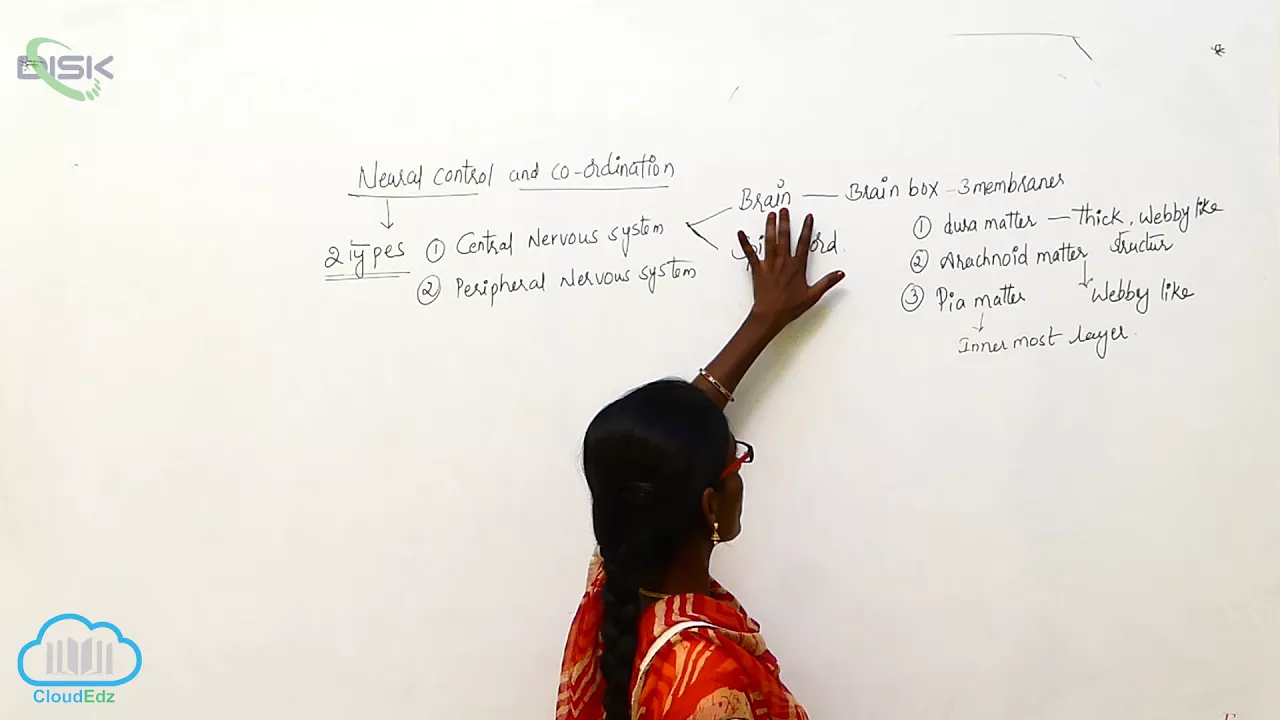 DISK
Neural control and co-ordination
2 Types
① Central Nervous system
② Peripheral Nervous system
Brain — Brain box - 3 membranes
① dura matter — Thick, Webby like structur
② Arachnoid matter
Webby like
③ Pia matter
Inner most layer.
CloudEdz